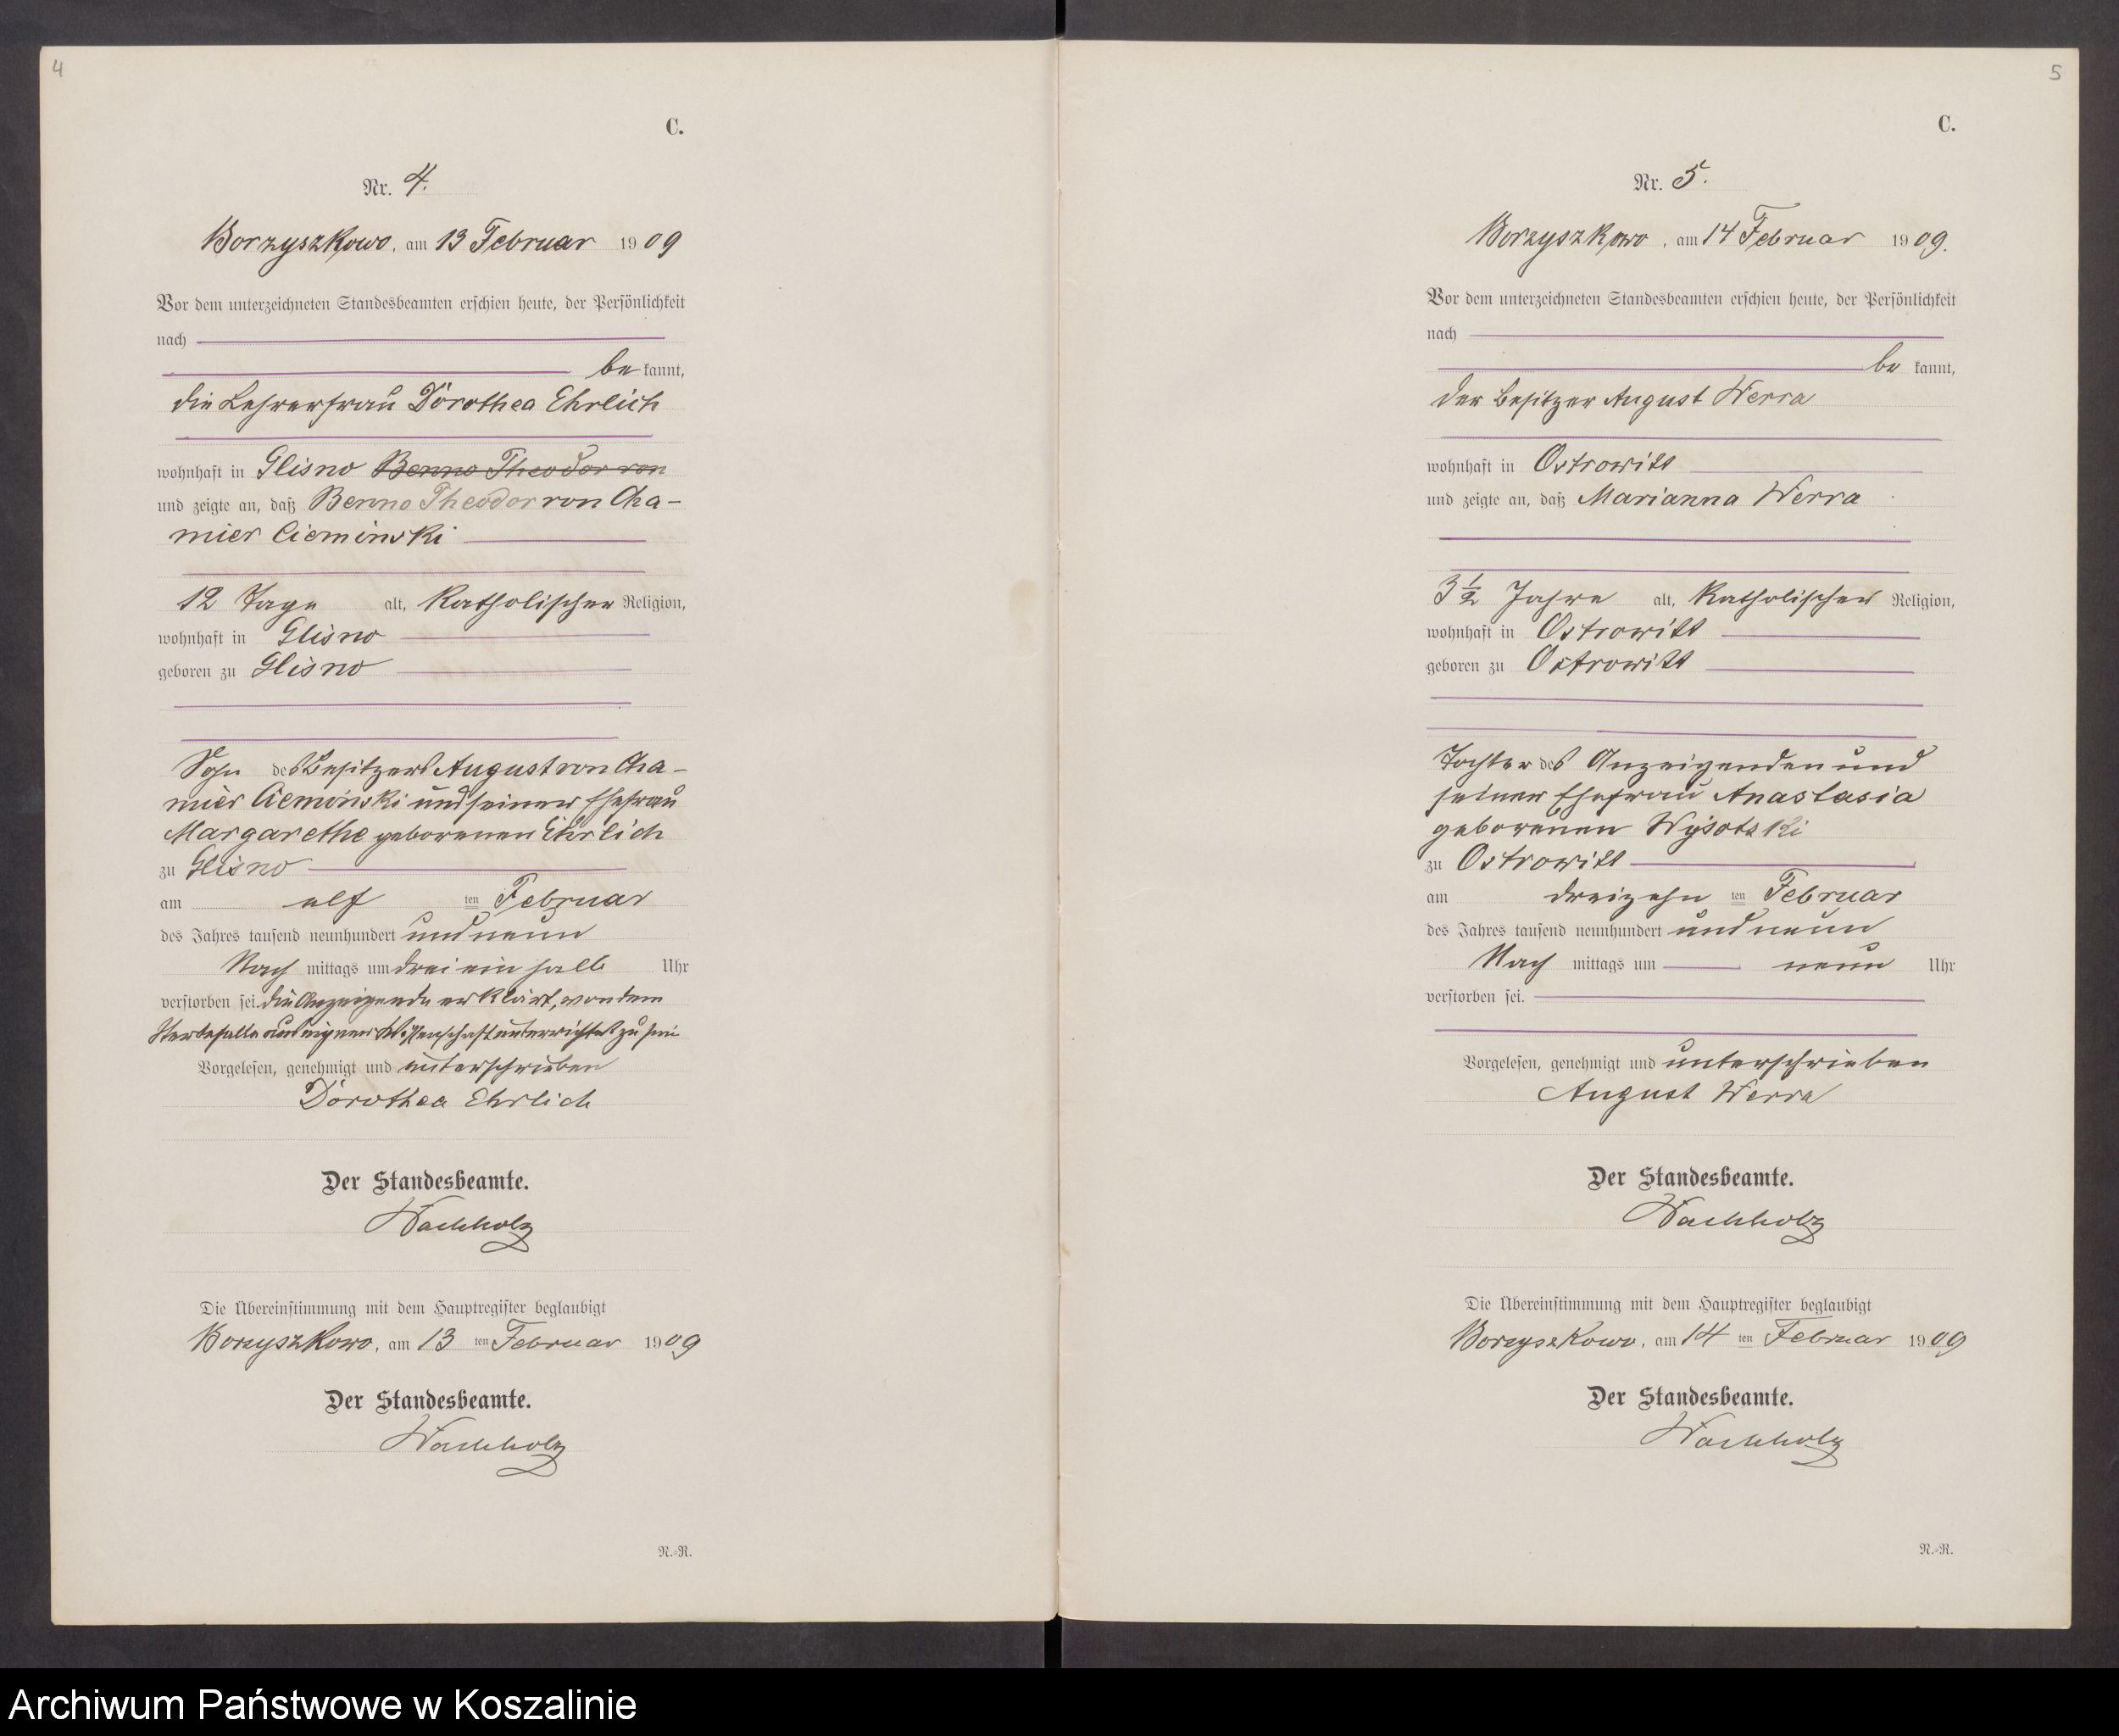 4
C.
Nr. 4.
Borzyszkowo, am 13 Februar 1909
Vor dem unterzeichneten Standesbeamten erschien heute, der Persönlichkeit
nach
be kannt,
die Lehrerfrau Dorothea Ehrlich
wohnhaft in Glisno Benno Theodor von
und zeigte an, daß Benno Theodor von Cha-
mier Cieminski
12 Tage alt, katholischer Religion,
wohnhaft in Glisno
geboren zu Glisno
Sohn des Besitzers August von Cha-
mier Cieminski und seiner Ehefrau
Margarethe geborenen Ehrlich
zu Glisno
am elf ten Februar
des Jahres tausend neunhundert und neun
Nach mittags um drei ein halb Uhr
verstorben sei. Die Anzeigende erklärt, von dem
Sterbefalle aus eigener Wissenschaft unterrichtet zu sein
Vorgelesen, genehmigt und unterschrieben
Dorothea Ehrlich
Der Standesbeamte.
Wachholz
Die Übereinstimmung mit dem Hauptregister beglaubigt
Borzyszkowo, am 13 ten Februar 1909
Der Standesbeamte.
Wachholz
N.-R.
5
C.
Nr. 5.
Borzyszkowo, am 14 Februar 1909.
Vor dem unterzeichneten Standesbeamten erschien heute, der Persönlichkeit
nach
be kannt,
der Besitzer August Werra
wohnhaft in Ostrowitt
und zeigte an, daß Marianna Werra
3 1/2 Jahre alt, katholischer Religion,
wohnhaft in Ostrowitt
geboren zu Ostrowitt
Tochter des Anzeigenden und
seiner Ehefrau Anastasia
geborenen Wysotzki
zu Ostrowitt
am dreizehn ten Februar
des Jahres tausend neunhundert und neun
Nach mittags um neun Uhr
verstorben sei.
Vorgelesen, genehmigt und unterschrieben
August Werra
Der Standesbeamte.
Wachholz
Die Übereinstimmung mit dem Hauptregister beglaubigt
Borzyszkowo, am 14 ten Februar 1909
Der Standesbeamte.
Wachholz
N.-R.
Archiwum Państwowe w Koszalinie